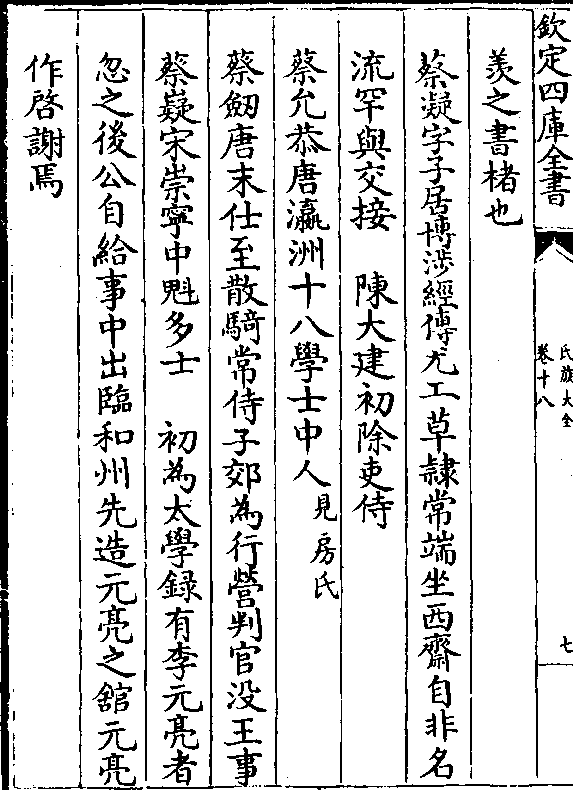 欽定四庫全書
氏族大全
卷十八
七
羨之書楮也
蔡凝字子居博涉經傳尤工草隸常端坐西齋自非名
流罕與交接　陳大建初除吏侍
蔡允恭唐瀛洲十八學士中人見房氏
蔡劒唐末仕至散騎常侍子郊為行營判官没王事
蔡嶷宋崇寧中魁多士　初為太學録有李元亮者
忽之後公自給事中出臨和州先造元亮之舘元亮
作啓謝焉